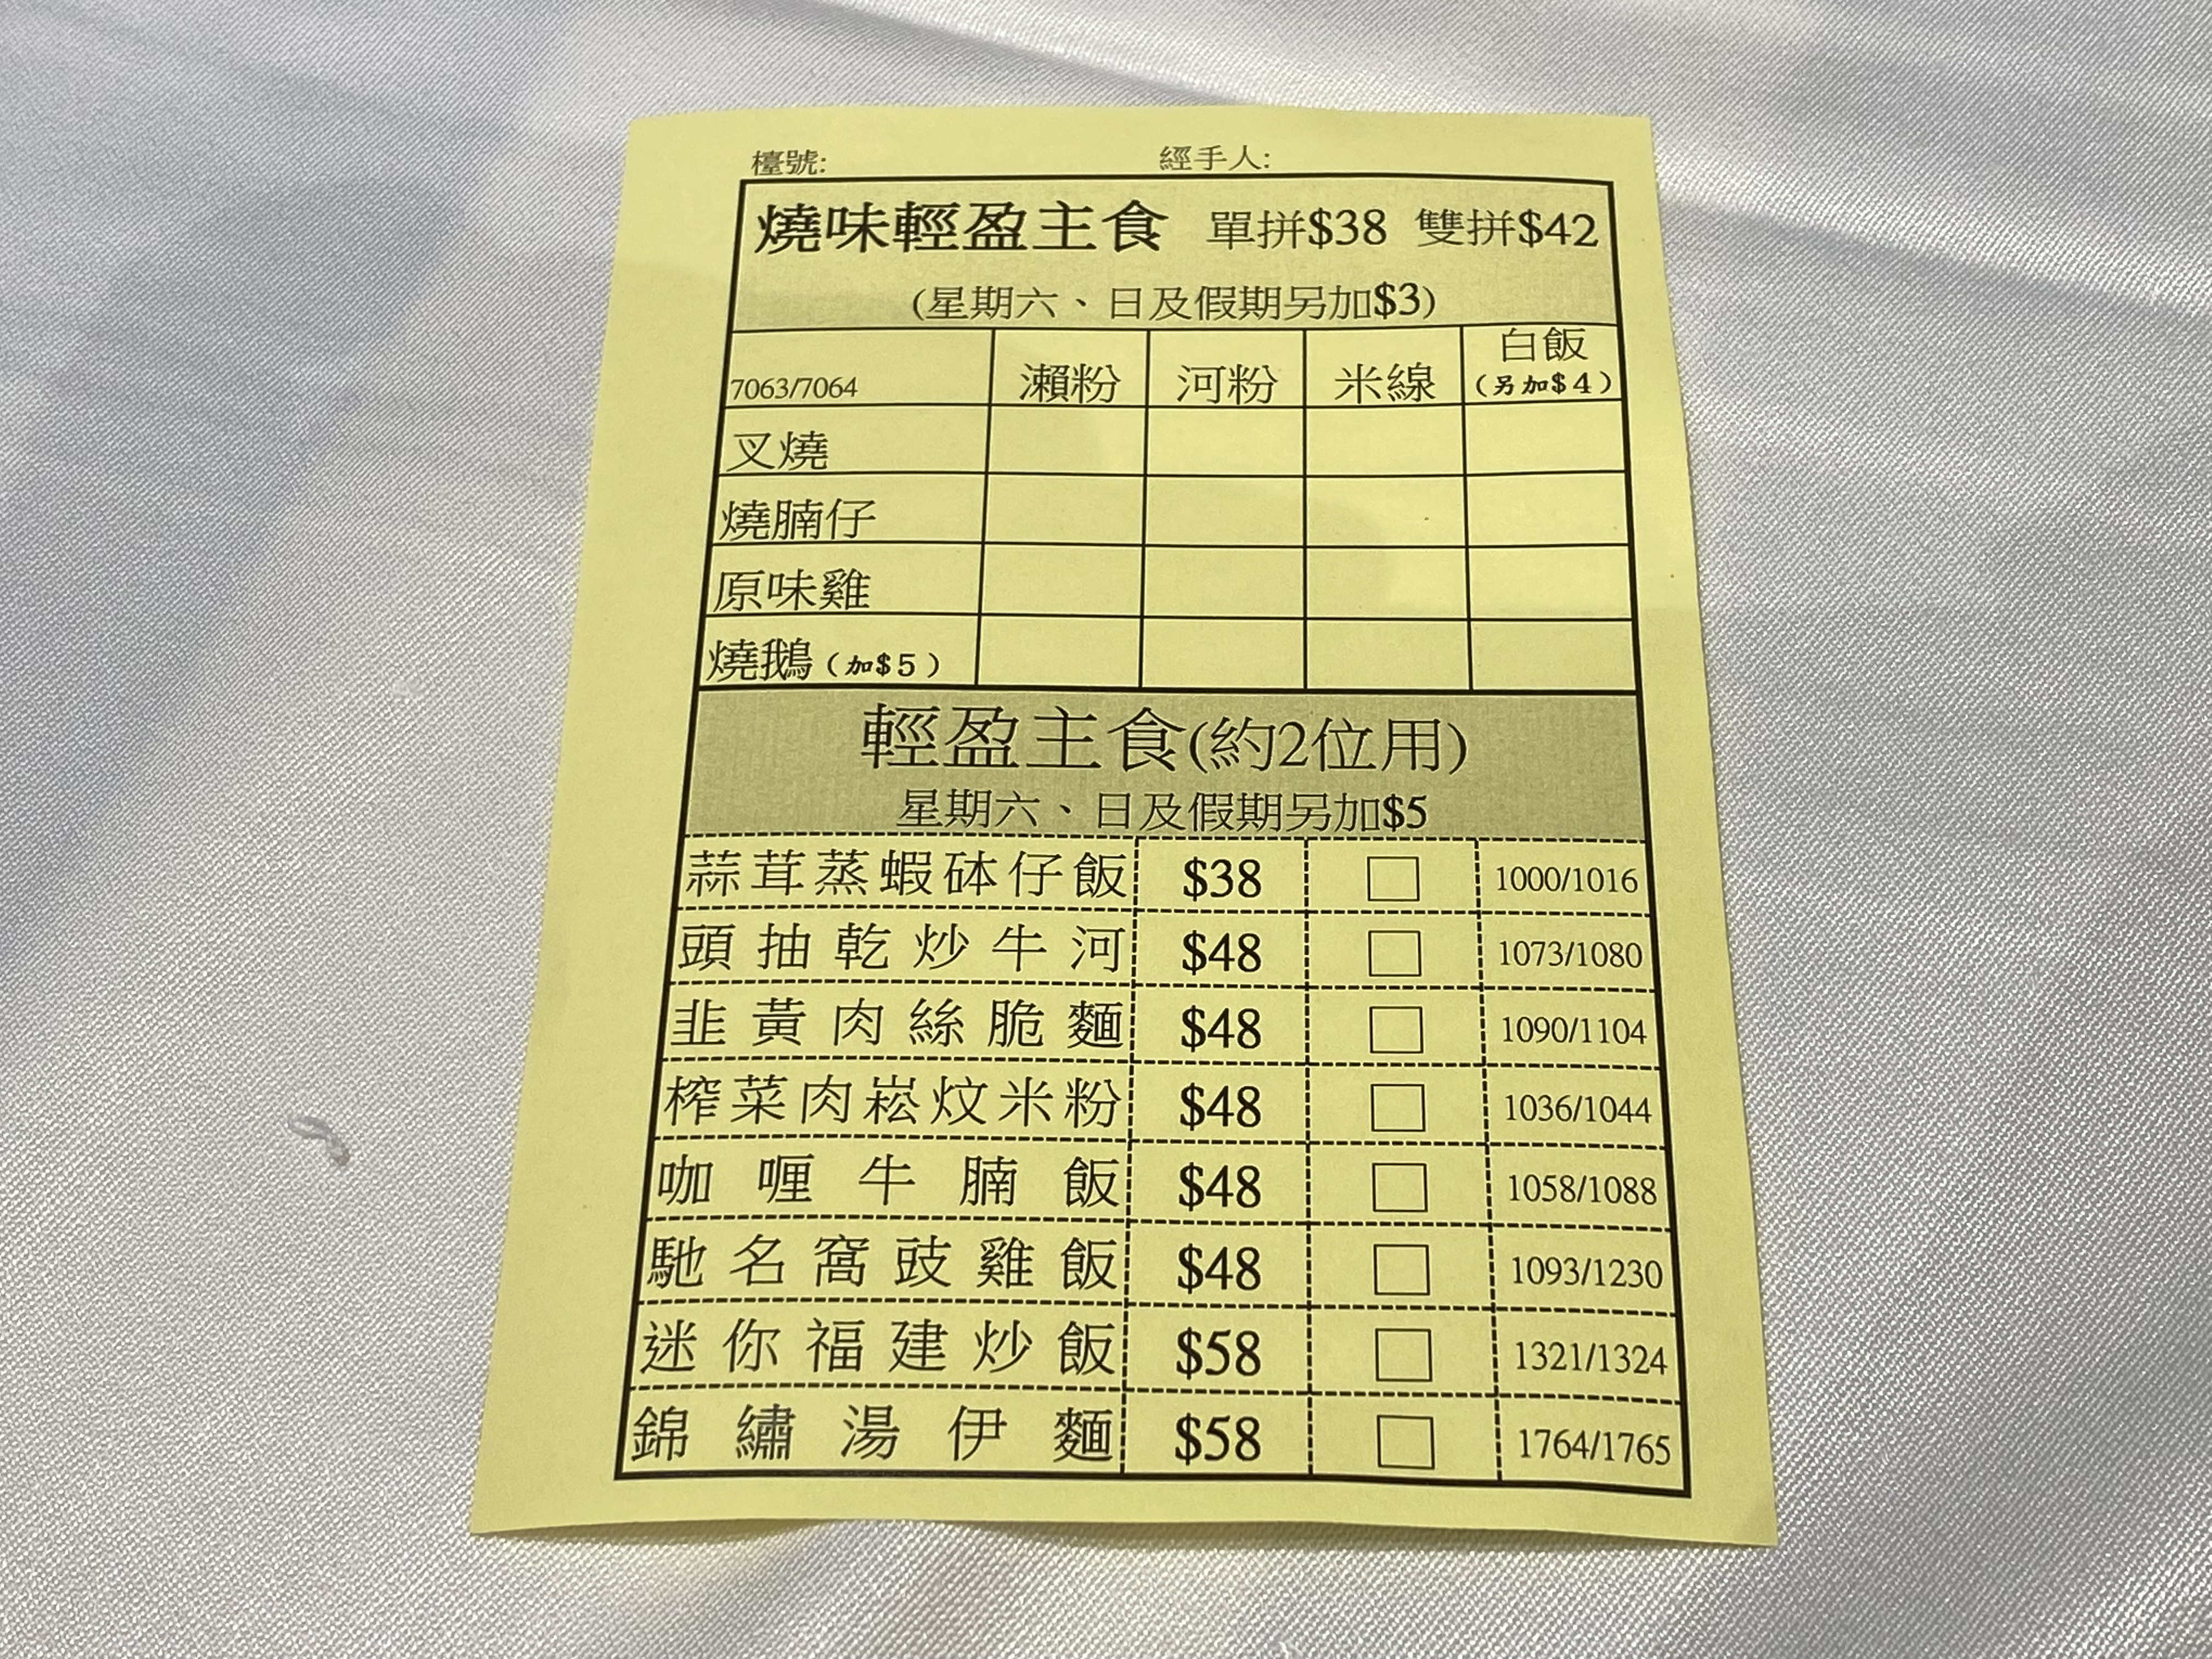 檯號: 經手人:
燒味輕盈主食 單拼$38 雙拼$42
(星期六、日及假期另加$3)
7063/7064 瀨粉 河粉 米線 白飯
(另加$4)
叉燒
燒腩仔
原味雞
燒鵝(加$5)
輕盈主食(約2位用)
星期六、日及假期另加$5
蒜茸蒸蝦砵仔飯 $38 □ 1000/1016
頭抽乾炒牛河 $48 □ 1073/1080
韭黃肉絲脆麵 $48 □ 1090/1104
榨菜肉崧炆米粉 $48 □ 1036/1044
咖喱牛腩飯 $48 □ 1058/1088
馳名窩豉雞飯 $48 □ 1093/1230
迷你福建炒飯 $58 □ 1321/1324
錦繡湯伊麵 $58 □ 1764/1765